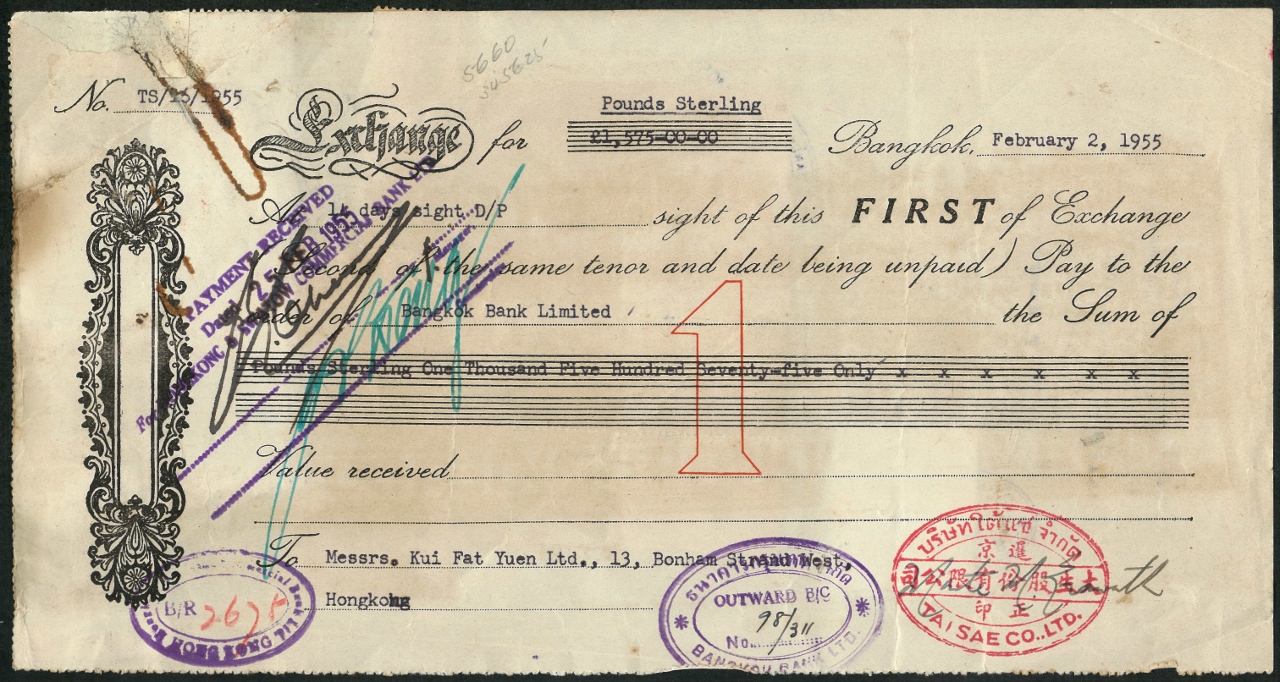 5660
No. TS/13/1955
Exchange for
Pounds Sterling
£1,575-00-00
Bangkok, February 2, 1955
At 14 days sight D/P sight of this FIRST of Exchange
Second of the same tenor and date being unpaid) Pay to the
order of Bangkok Bank Limited the Sum of
Pounds Sterling One Thousand Five Hundred Seventy-five Only x x x x x x
1
Value received
To Messrs. Kui Fat Yuen Ltd., 13, Bonham Strand West,
Hongkong
PAYMENT RECEIVED
Dated 2 FEB 1955
For HONGKONG COMMERCIAL BANK LTD
B/R 2625
HONG KONG
ธนาคารกรุงเทพ จำกัด
OUTWARD B/C
No. 98/311
BANGKOK BANK LTD.
บริษัท ใต้แซ่ จำกัด
京暹
大生股份有限公司
印正
TAI SAE CO., LTD.